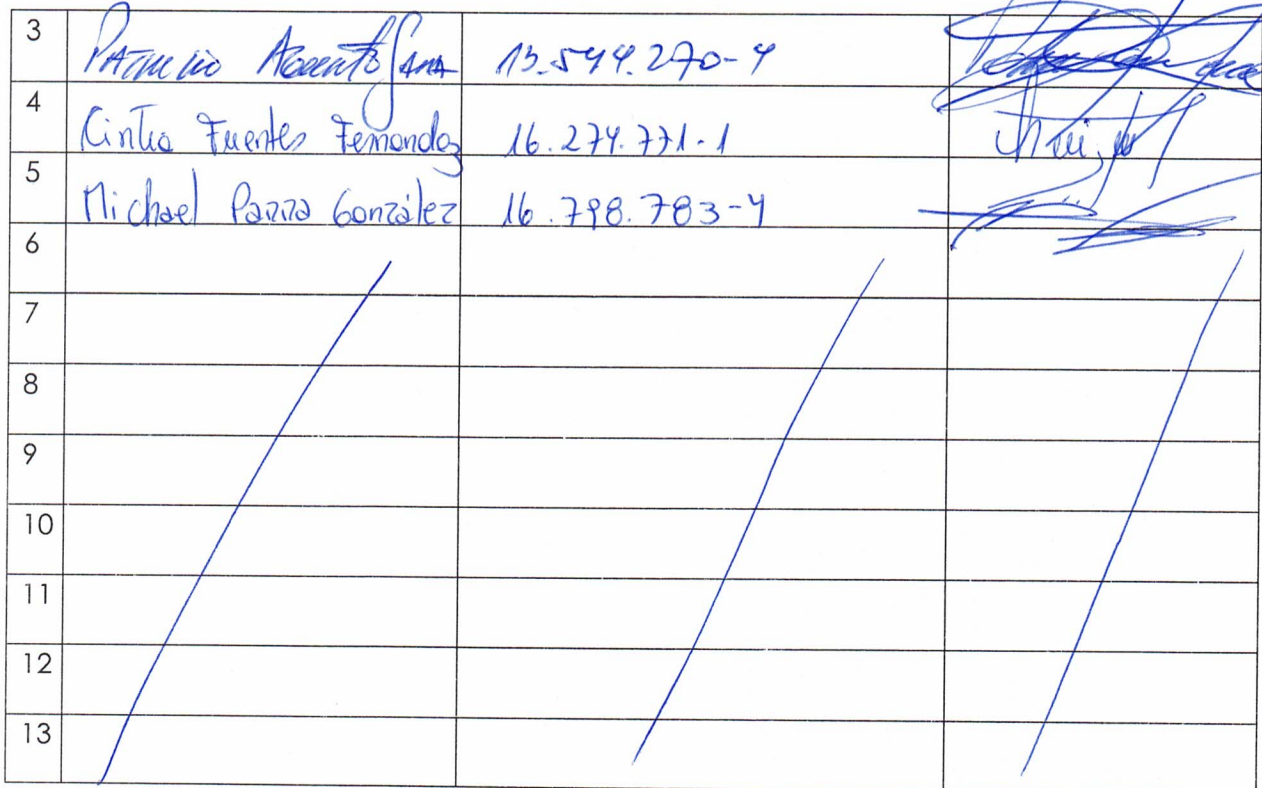 3 Patricio 13.544.270-4
4 Cintia Fuentes Fernandez 16.274.771-1
5 Michael Parra González 16.798.783-4
6
7
8
9
10
11
12
13